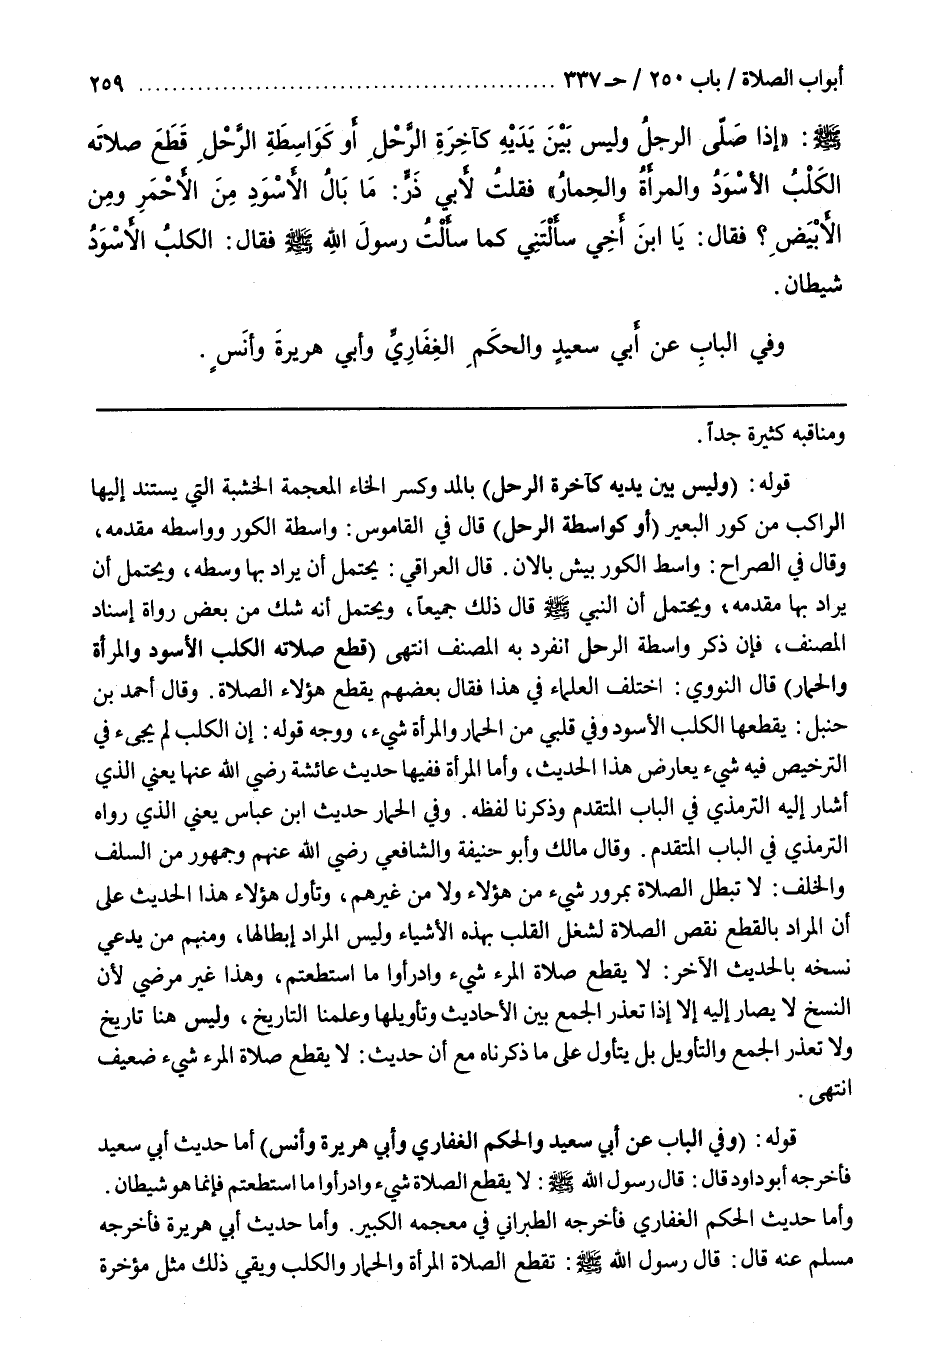 أبواب الصلاة / باب ٢٥٠ / حـ ٣٣٧ .................................................. ٢٥٩
ﷺ: «إذا صَلّى الرجلُ وليس بَيْنَ يَدَيْهِ كآخِرَةِ الرَّحْلِ أَو كَوَاسِطَةِ الرَّحْلِ قَطَعَ صلاتَه
الكَلْبُ الأسْوَدُ والمرأَةُ والحِمارُ» فقلتُ لأبي ذَرٍّ: مَا بَالُ الأَسْوَدِ مِنَ الأَحْمَرِ ومِن
الأَبْيَضِ؟ فقال: يَا ابنَ أَخِي سأَلْتَنِي كما سأَلْتُ رسولَ اللهِ ﷺ فقال: الكلبُ الأَسْوَدُ
شيطان.
وفي البابِ عن أَبي سعيدٍ والحكَمِ الغِفَارِيِّ وأبي هريرةَ وأنَسٍ.
ومناقبه كثيرة جداً.
قوله: (وليس بين يديه كآخرة الرحل) بالمد وكسر الخاء المعجمة الخشبة التي يستند إليها
الراكب من كور البعير (أو كواسطة الرحل) قال في القاموس: واسطة الكور وواسطه مقدمه،
وقال في الصراح: واسط الكور بيش بالان. قال العراقي: يحتمل أن يراد بها وسطه، ويحتمل أن
يراد بها مقدمه، ويحتمل أن النبي ﷺ قال ذلك جميعاً، ويحتمل أنه شك من بعض رواة إسناد
المصنف، فإن ذكر واسطة الرحل انفرد به المصنف انتهى (قطع صلاته الكلب الأسود والمرأة
والحمار) قال النووي: اختلف العلماء في هذا فقال بعضهم يقطع هؤلاء الصلاة. وقال أحمد بن
حنبل: يقطعها الكلب الأسود وفي قلبي من الحمار والمرأة شيء، ووجه قوله: إن الكلب لم يجىء في
الترخيص فيه شيء يعارض هذا الحديث، وأما المرأة ففيها حديث عائشة رضي الله عنها يعني الذي
أشار إليه الترمذي في الباب المتقدم وذكرنا لفظه. وفي الحمار حديث ابن عباس يعني الذي رواه
الترمذي في الباب المتقدم. وقال مالك وأبو حنيفة والشافعي رضي الله عنهم وجمهور من السلف
والخلف: لا تبطل الصلاة بمرور شيء من هؤلاء ولا من غيرهم، وتأول هؤلاء هذا الحديث على
أن المراد بالقطع نقص الصلاة لشغل القلب بهذه الأشياء وليس المراد إبطالها، ومنهم من يدعي
نسخه بالحديث الآخر: لا يقطع صلاة المرء شيء وادرأوا ما استطعتم، وهذا غير مرضي لأن
النسخ لا يصار إليه إلا إذا تعذر الجمع بين الأحاديث وتأويلها وعلمنا التاريخ، وليس هنا تاريخ
ولا تعذر الجمع والتأويل بل يتأول على ما ذكرناه مع أن حديث: لا يقطع صلاة المرء شيء ضعيف
انتهى.
قوله: (وفي الباب عن أبي سعيد والحكم الغفاري وأبي هريرة وأنس) أما حديث أبي سعيد
فأخرجه أبو داود قال: قال رسول الله ﷺ: لا يقطع الصلاة شيء وادرأوا ما استطعتم فإنما هو شيطان.
وأما حديث الحكم الغفاري فأخرجه الطبراني في معجمه الكبير. وأما حديث أبي هريرة فأخرجه
مسلم عنه قال: قال رسول الله ﷺ: تقطع الصلاة المرأة والحمار والكلب ويقي ذلك مثل مؤخرة